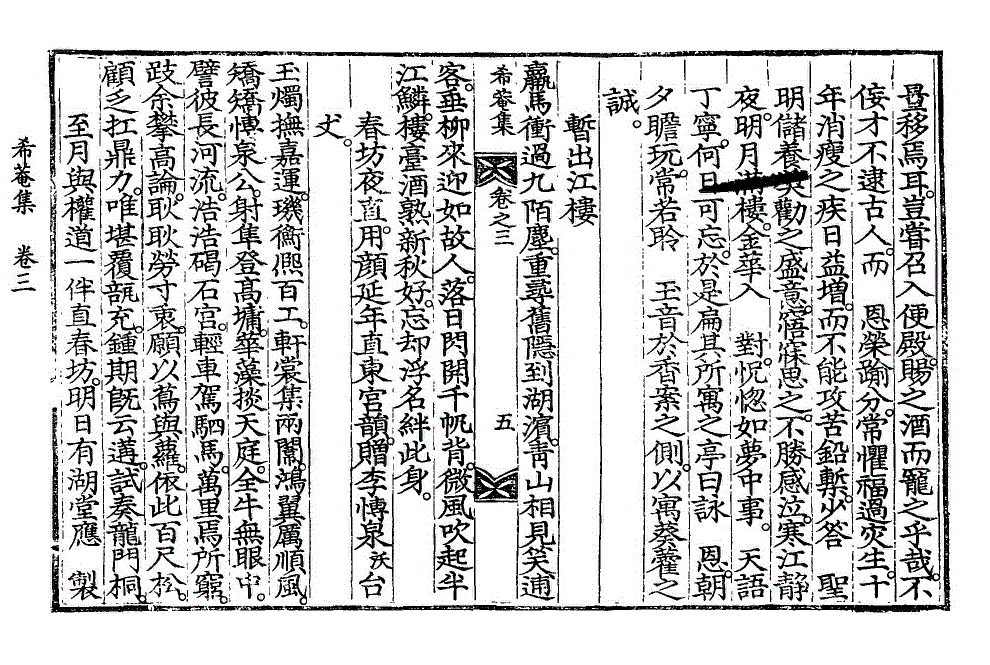 曡移焉耳。豈嘗召入便殿。賜之酒而寵之乎哉。不
侫才不逮古人。而 恩榮踰分。常懼福過灾生。十
年消瘦之疾日益增。而不能攻苦鉛槧。少答 聖
明儲養奬勸之盛意。寤寐思之。不勝感泣。寒江靜
夜。明月滿樓。金華入 對。怳惚如夢中事。 天語
丁寧。何日可忘。於是扁其所寓之亭曰詠 恩。朝
夕瞻玩。常若聆 玉音於香案之側。以寓葵藿之
誠。
暫出江樓
羸馬衝過九陌塵。重尋舊隱到湖濱。靑山相見笑逋
希菴集 卷之三 五
客。垂柳來迎如故人。落日閃開千帆背。微風吹起半
江鱗。樓臺酒熟新秋好。忘却浮名絆此身。
春坊夜直。用顔延年直東宮韻。贈李愽泉 沃 台
丈。
玉燭撫嘉運。璣衡凞百工。軒裳集兩闈。鴻翼厲順風。
矯矯愽泉公。射隼登高墉。華藻掞天庭。全牛無眼中。
譬彼長河流。浩浩碣石宮。輕車駕駟馬。萬里焉所窮。
跂余攀高論。耿耿勞寸衷。願以蔦與蘿。依此百尺松。
顧乏扛鼎力。唯堪覆瓿充。鍾期旣云遘。試奏龍門桐。
至月與權道一伴直春坊。明日有湖堂應 製
希菴集 卷三